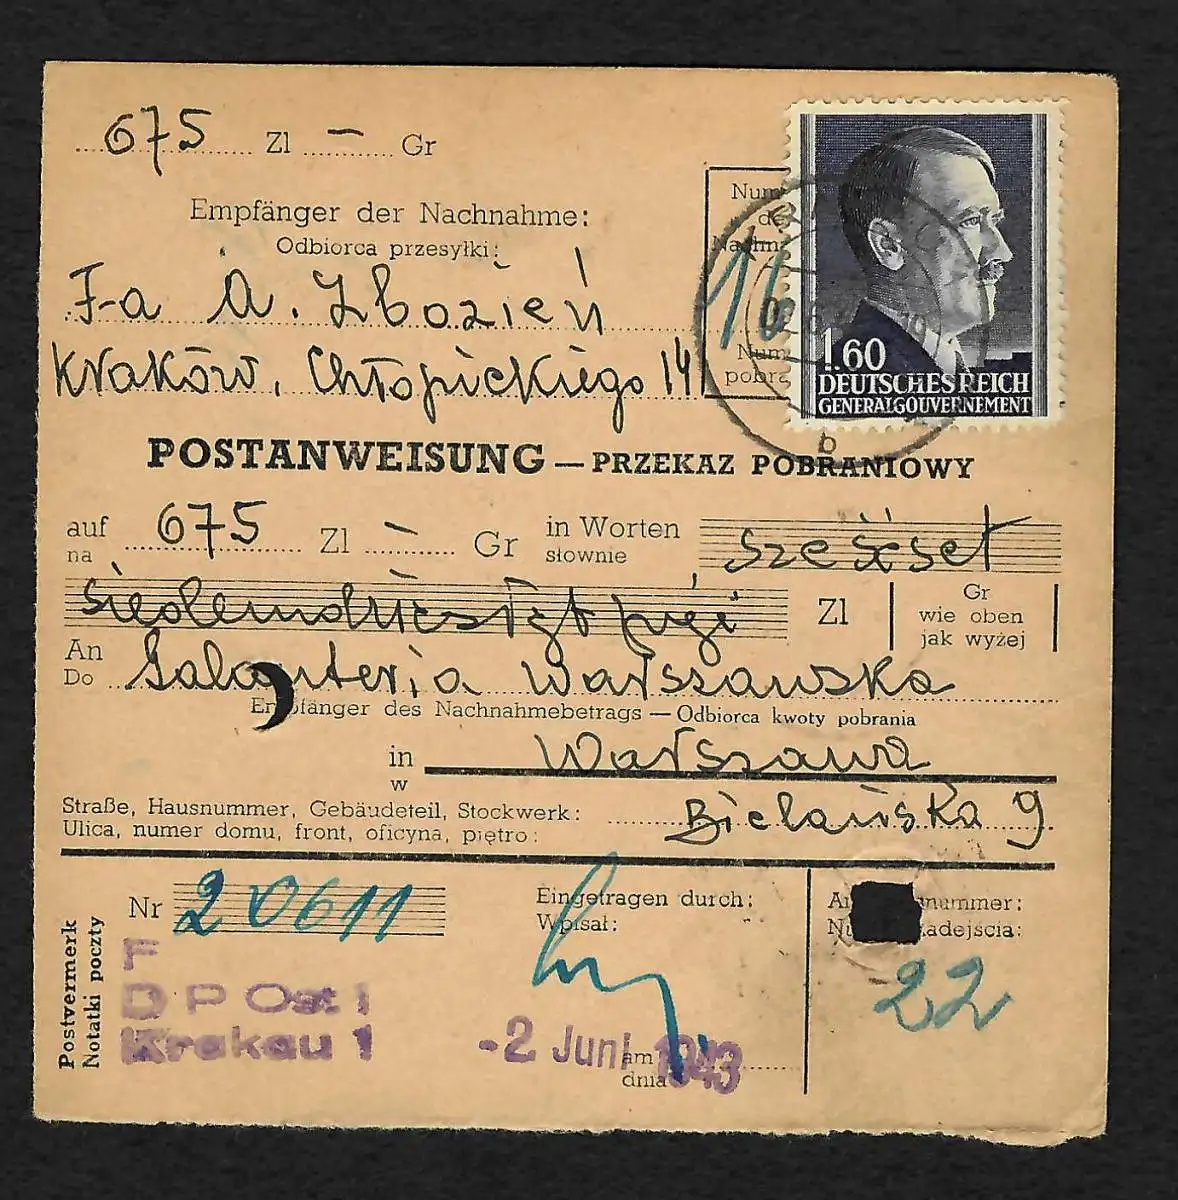 675 Zl — Gr
Empfänger der Nachnahme:
Odbiorca przesyłki:
F-a A. Zbozień
Kraków, Chłopickiego 14
Num
de
Nachna
16
Num
pobra
1.60
DEUTSCHES REICH
GENERALGOUVERNEMENT
b
POSTANWEISUNG — PRZEKAZ POBRANIOWY
auf 675 Zl — Gr in Worten
na słownie sześset
siedemdziesiąt pięć Zl Gr
wie oben
jak wyżej
An
Do Galanteria Warszawska
Empfänger des Nachnahmebetrags — Odbiorca kwoty pobrania
in Warszawa
w
Straße, Hausnummer, Gebäudeteil, Stockwerk:
Ulica, numer domu, front, oficyna, piętro: Bielańska 9
Postvermerk
Notatki poczty
Nr 20611
Eingetragen durch:
Wpisał:
nummer:
adejscia:
22
F
D P Ost 1
Krakau 1
-2 Juni 1943
am
dnia